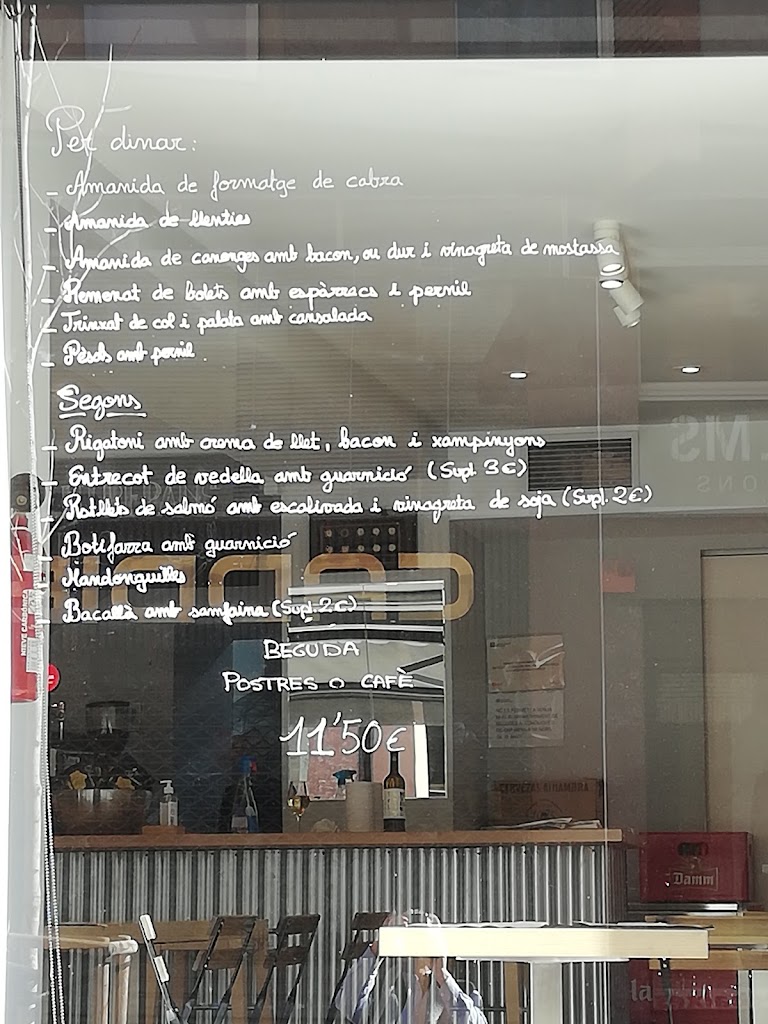 Per dinar:
- Amanida de formatge de cabra
- Amanida de llenties
- Amanida de canonges amb bacon, ou dur i vinagreta de mostassa
- Remenat de bolets amb espàrracs i pernil
- Trinxat de col i patata amb cansalada
- Pèsols amb pernil
Segons
- Rigatoni amb crema de llet, bacon i xampinyons
- Entrecot de vedella amb guarnició (Supl. 3€)
- Rotllets de salmó amb escalivada i vinagreta de soja (Supl. 2€)
- Botifarra amb guarnició
- Mandonguilles
- Bacallà amb samfaina (Supl. 2€)
BEGUDA
POSTRES O CAFÈ
11'50€
NIEVE CARBÓNICA
Damm
la